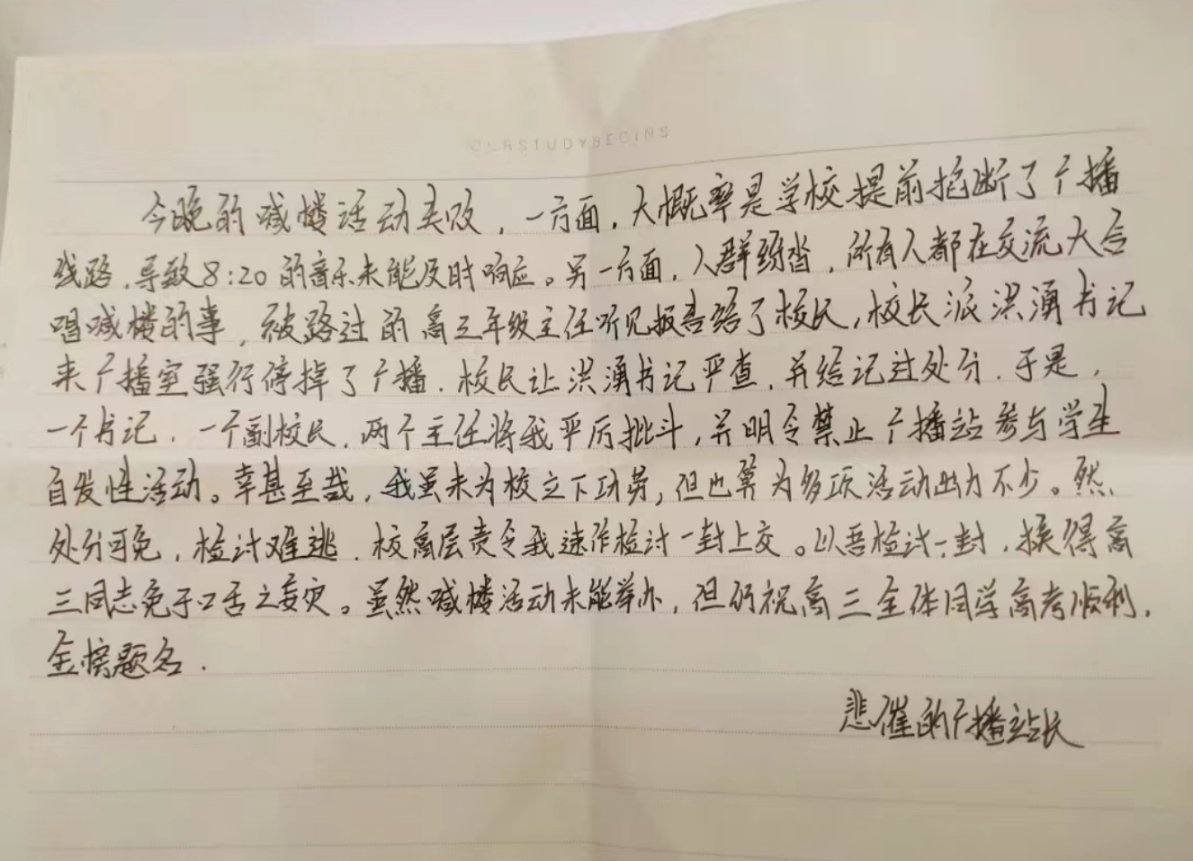 OURSTUDYBEGINS
今晚的喊楼活动失败，一方面，大概率是学校提前掐断了广播
线路，导致8:20的音乐未能及时响应。另一方面，人群纷沓，所有人都在交流大合
唱喊楼的事，被路过的高三年级主任听见报告给了校长，校长派洪湧书记
来广播室强行停掉了广播．校长让洪湧书记严查，并给记过处分．于是，
一个书记．一个副校长，两个主任将我严厉批斗，并明令禁止广播站参与学生
自发性活动。幸甚至哉，我虽未为校立下功劳，但也算为多项活动出力不少。然，
处分可免，检讨难逃．校高层责令我速作检讨一封上交。以吾检讨一封，换得高
三同志免于口舌之妄灾。虽然喊楼活动未能举办，但仍祝高三全体同学高考顺利，
金榜题名．
悲催的广播站长